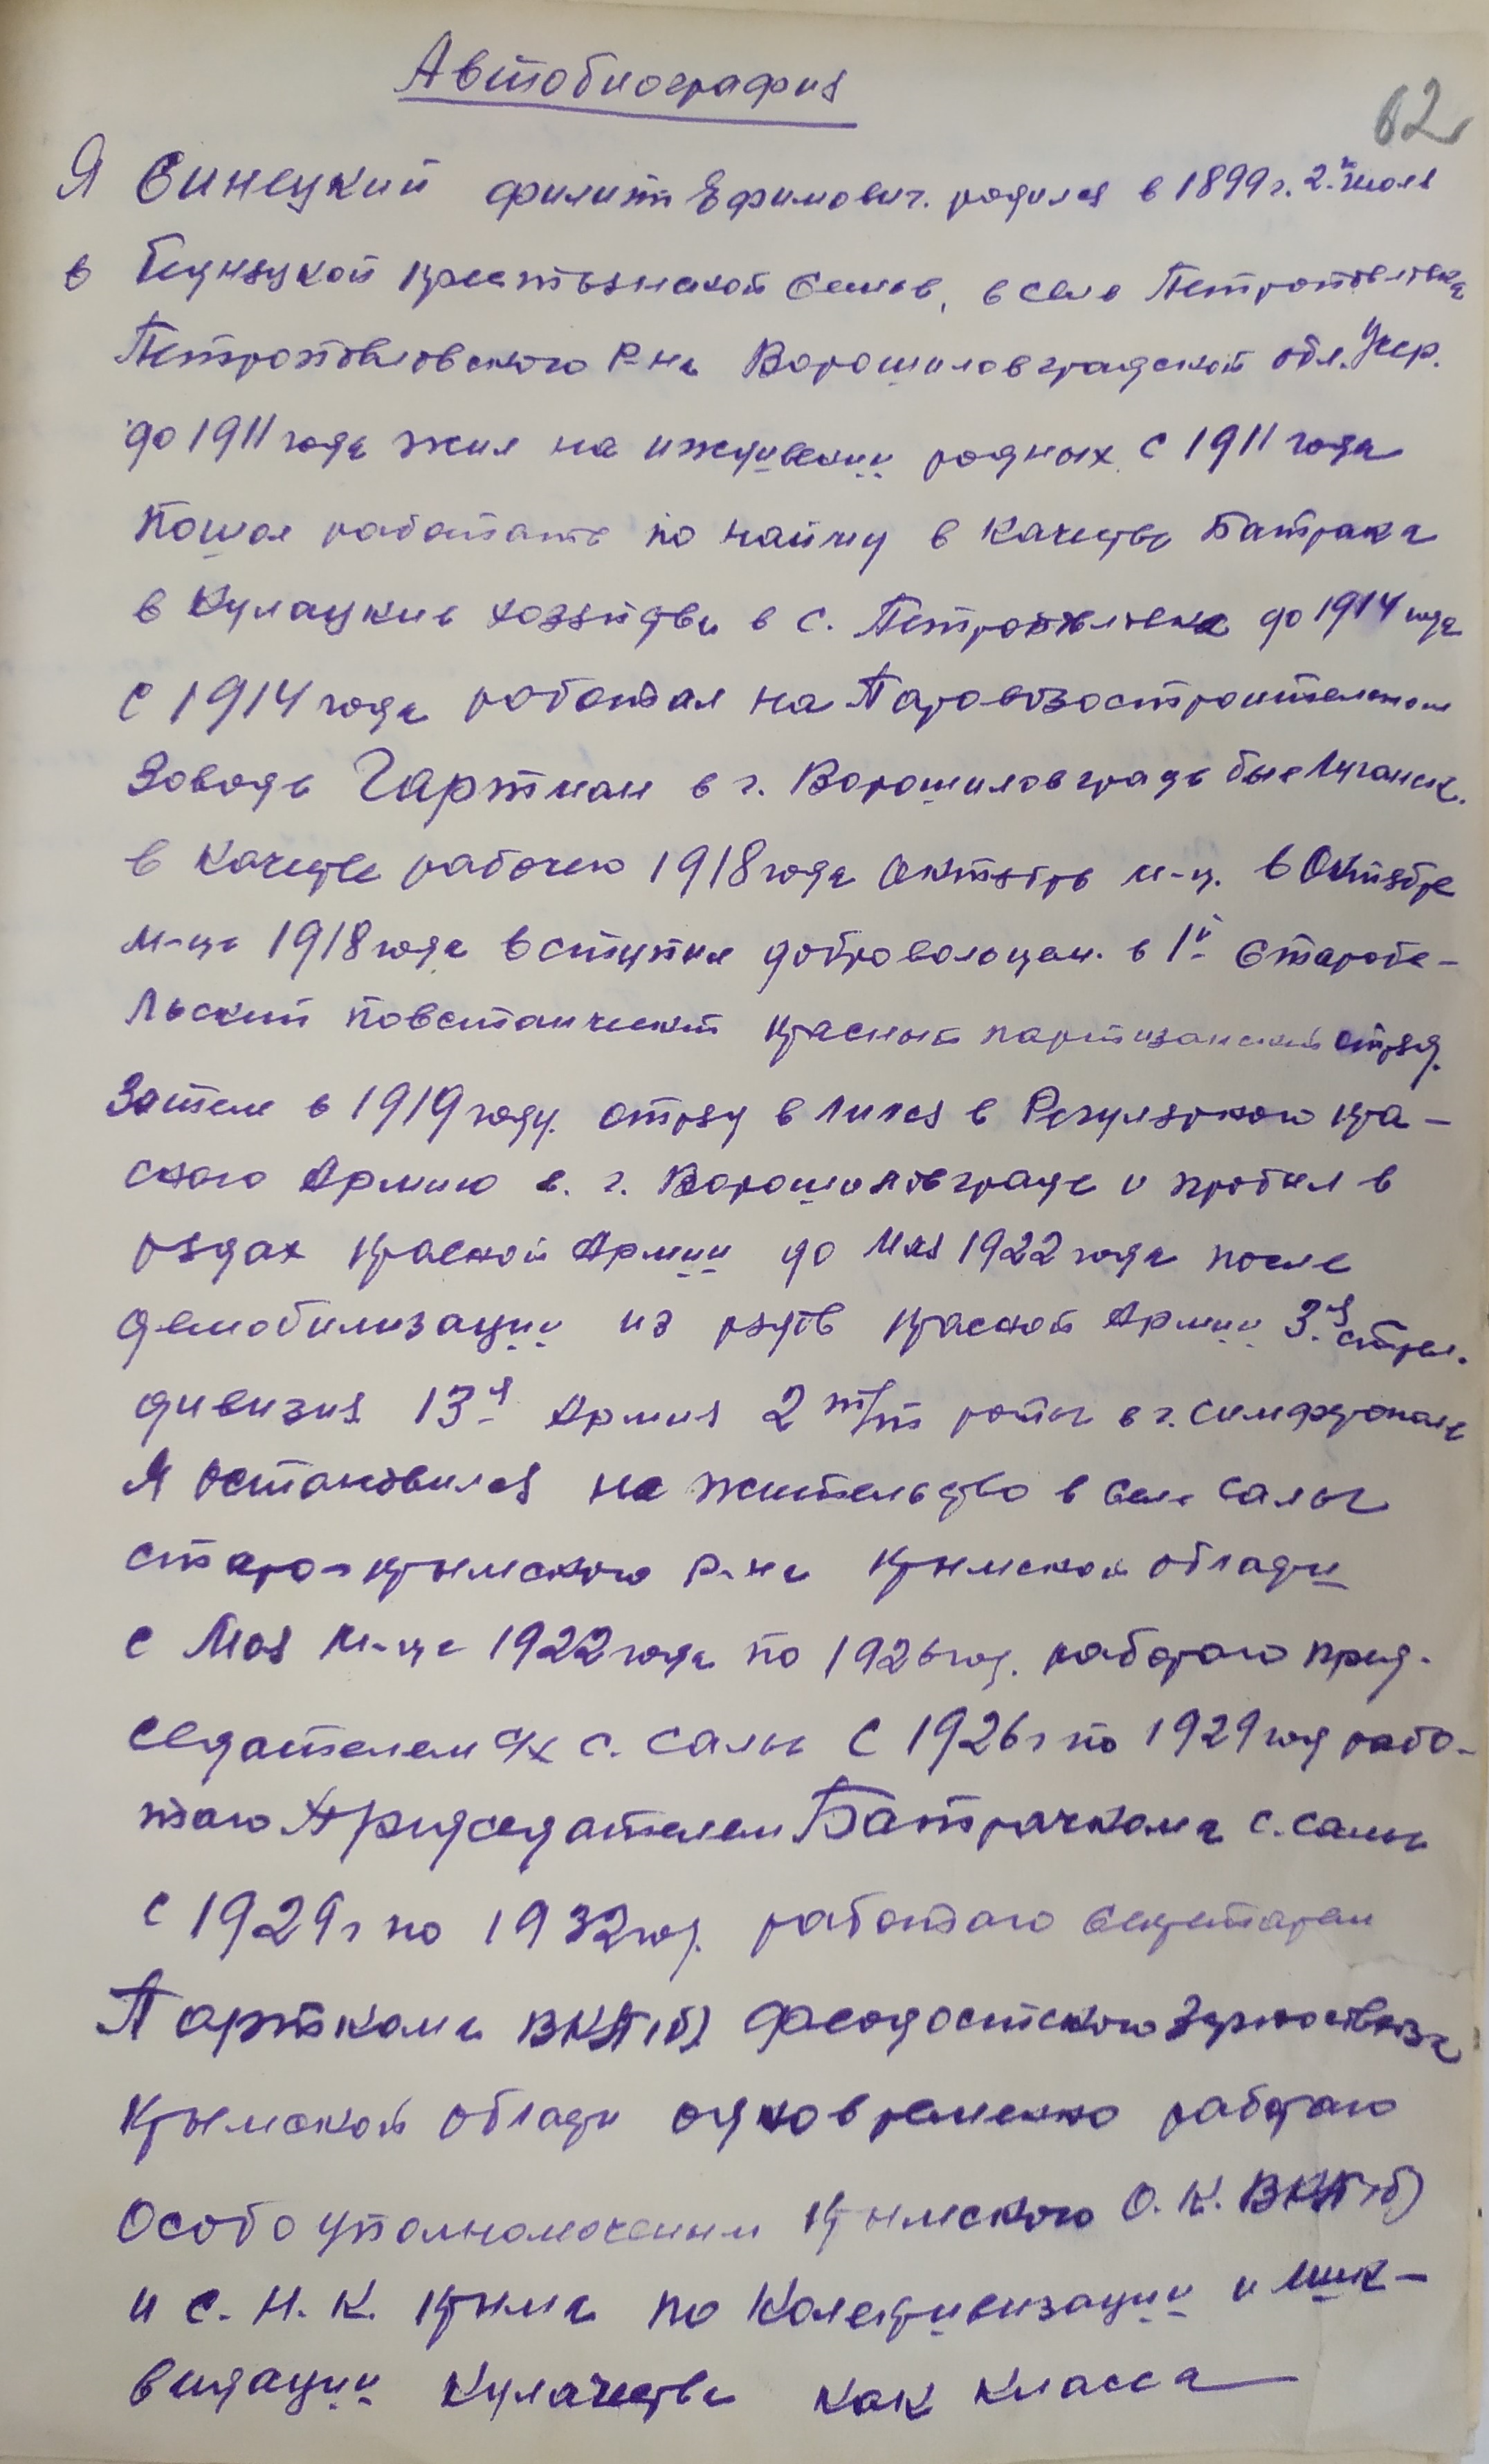 Автобиография
62
Я Синецкий Филипп Ефимович. родился в 1899 г. 2-й июля
в бедняцкой крестьянской семье, в селе Петропавловка
Петропавловского р-на Ворошиловградской обл. Укр.
до 1911 года жил на иждивении родных с 1911 года
пошол работать по найму в качестве Батрака
в Кулацкие хозяйства в с. Петропавловка до 1914 года
с 1914 года работал на Паровозостроительном
Заводе Гартман в г. Ворошиловграде быв Луганск.
в качестве рабочего 1918 года Октябрь м-ц. в Октябре
м-це 1918 года вступил добровольцем. в 1й Старобе-
льский повстанческий красный партизанский отряд.
Затем в 1919 году. отряд влился в Регулярною кра-
сною Армию в. г. Ворошиловграде и пробыл в
рядах красной Армии до Мая 1922 года после
демобилизации из рядов красной Армии 3-я стрел.
дивизия 13-я Армия 2 роты в г. Симферополе
Я остановился на жительство в селе Салы
старо-крымского р-на крымской области
с Мая м-ца 1922 года по 1926 год. работаю пред-
седателем с/х с. Салы с 1926 г по 1929 год рабо-
таю Председателем Батрачкома с. Салы
с 1929 г по 1932 год. работаю секретарем
Парткома ВКП(б) Феодосийского Зерносовхоза
крымской области одновременно работаю
Особо уполномоченым крымского О. К. ВКП(б)
и С. Н. К. крыма по Колективизации и лик-
видации Кулачества как класса